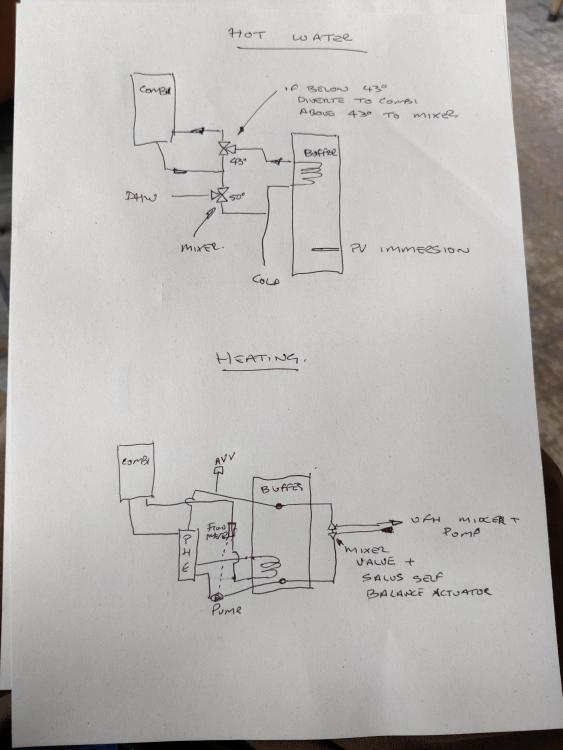 HOT WATER
COMBI
IF BELOW 43°
DIVERTE TO COMBI
ABOVE 43° TO MIXER
43°
BUFFER
DHW
50°
MIXER.
PV IMMERSION
COLD
HEATING.
COMBI
AVV
BUFFER
PHE
FLOW
UFH MIXER +
PUMP
MIXER
VALVE +
SALUS SELF
BALANCE ACTUATOR
PUMP